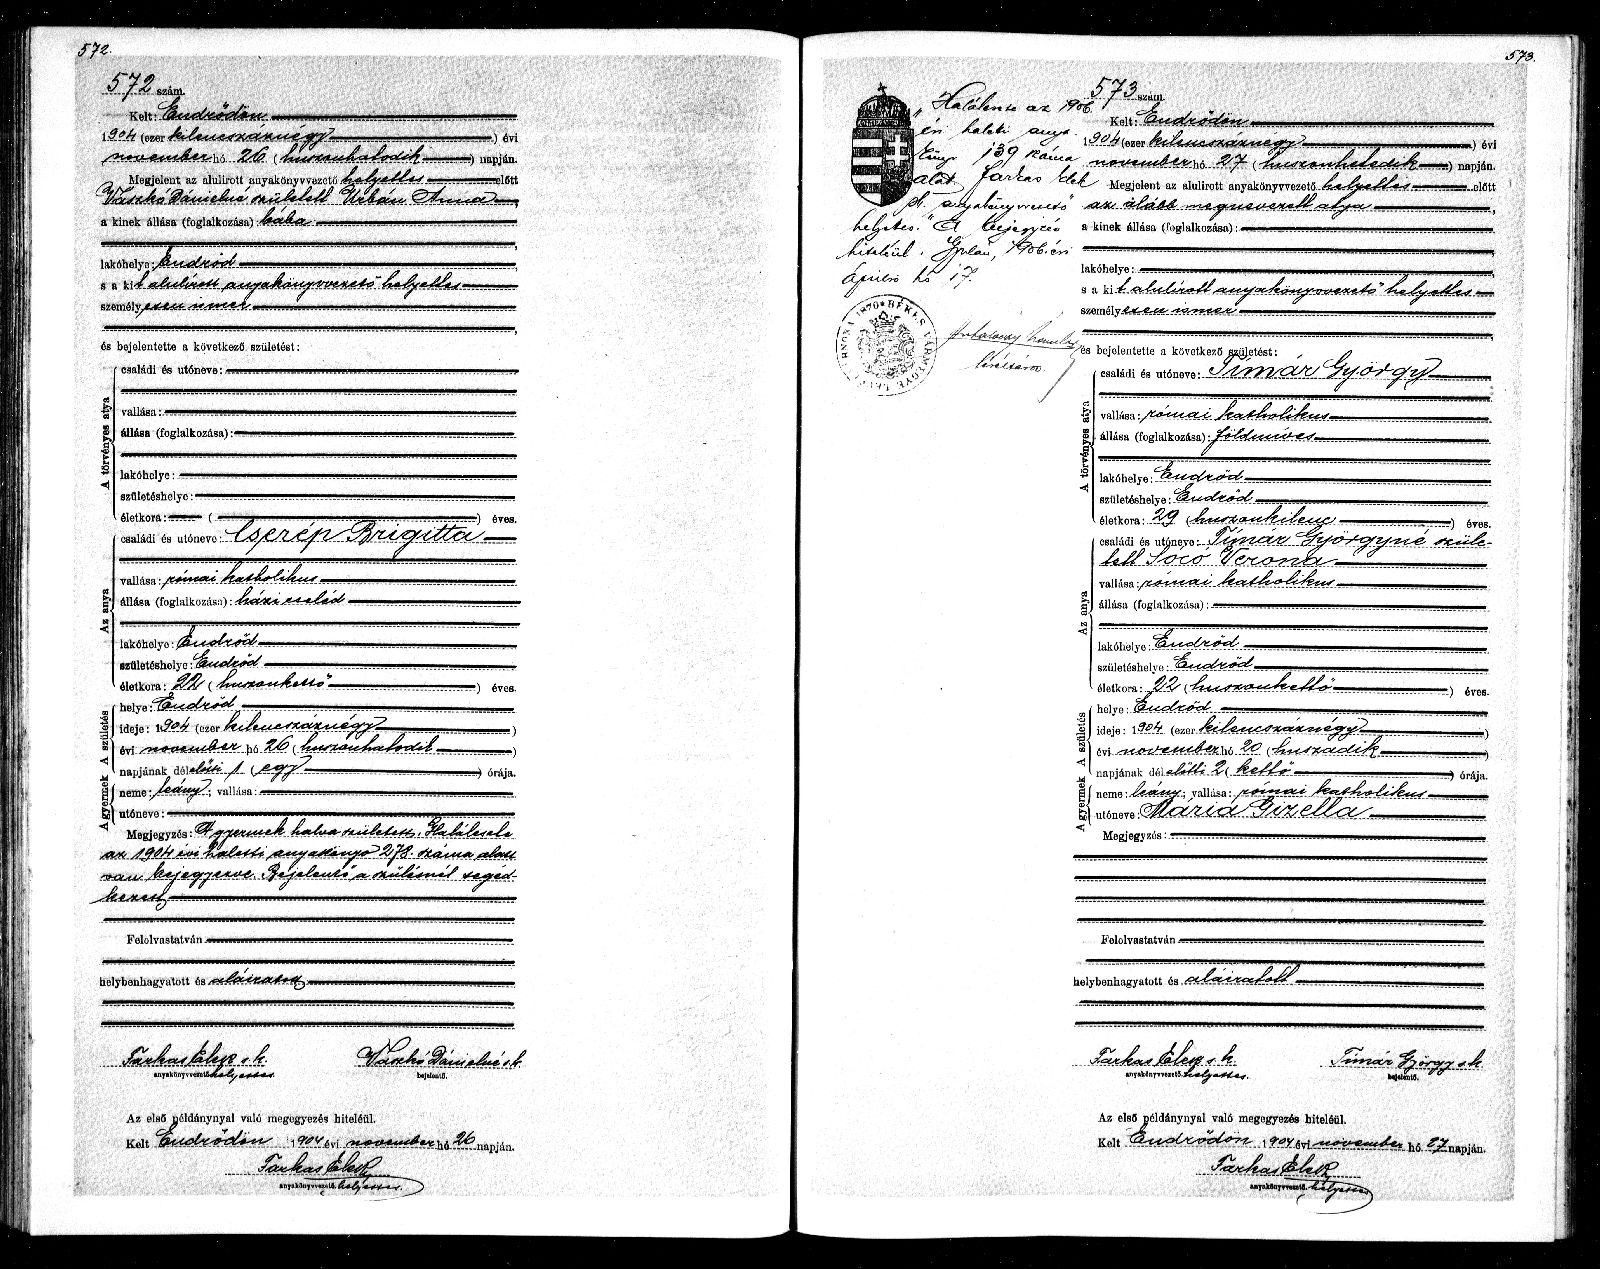 572.
572 szám.
Kelt: Endrődön
1904 (ezer kilencszáznégy) évi
november hó 26 (huszonhatodik) napján.
Megjelent az alulirott anyakönyvvezető helyettes előtt
Vaszkó Dánielné született Urbán Anna,
a kinek állása (foglalkozása) bába
lakóhelye: Endrőd
s a kit alulírott anyakönyvvezető helyettes
személyesen ismer
és bejelentette a következő születést:
A törvényes atya
családi és utóneve:
vallása:
állása (foglalkozása):
lakóhelye:
születéshelye:
életkora: ( ) éves.
Az anya
családi és utóneve: Cserép Brigitta
vallása: római katholikus
állása (foglalkozása): házi cseléd
lakóhelye: Endrőd
születéshelye: Endrőd
életkora: 22 (huszonkettő) éves.
A születés
helye: Endrőd
ideje: 1904 (ezer kilencszáznégy)
évi november hó 26 (huszonhatodik)
napjának délelőtti 1 (egy) órája.
A gyermek
neme: leány; vallása:
utóneve:
Megjegyzés: A gyermek halva született. Halálesete
az 1904 évi halotti anyakönyv 278. száma alatt
van bejegyezve. Bejelentő a szülésnél segéd-
kezett
Felolvastatván
helybenhagyatott és aláiratott
Farkas Elek s.k.
anyakönyvvezető helyettes
Vaszkó Dánielné s.k.
bejelentő.
Az első példánynyal való megegyezés hiteléül.
Kelt Endrődön 1904 évi november hó 26 napján.
Farkas Elek
anyakönyvvezető helyettes.
573.
„Halálesete az 1906
évi halotti anya
könyv 139 száma
alatt. Farkas Elek
h. anyakönyvvezető
helyettes." A bejegyzés
hiteléül. Gyulán, 1906. évi
április hó 17.
BÉKÉS VÁRMEGYE 1876
levéltárnok.
573 szám.
Kelt: Endrődön
1904 (ezer kilencszáznégy) évi
november hó 27 (huszonhetedik) napján.
Megjelent az alulirott anyakönyvvezető helyettes előtt
az alább megnevezett atya,
a kinek állása (foglalkozása):
lakóhelye:
s a kit alulírott anyakönyvvezető helyettes
személyesen ismer
és bejelentette a következő születést:
A törvényes atya
családi és utóneve: Tímár György
vallása: római katholikus
állása (foglalkozása): földmíves
lakóhelye: Endrőd
születéshelye: Endrőd
életkora: 29 (huszonkilenc) éves.
Az anya
családi és utóneve: Tímár Györgyné szüle-
tett Soczó Verona
vallása: római katholikus
állása (foglalkozása):
lakóhelye: Endrőd
születéshelye: Endrőd
életkora: 22 (huszonkettő) éves.
A születés
helye: Endrőd
ideje: 1904 (ezer kilencszáznégy)
évi november hó 20 (huszadik)
napjának délelőtti 2 (kettő) órája.
A gyermek
neme: leány; vallása: római katholikus
utóneve: Mária Gizella
Megjegyzés:
Felolvastatván
helybenhagyatott és aláiratott
Farkas Elek s.k.
anyakönyvvezető helyettes.
Tímár György s.k.
bejelentő.
Az első példánynyal való megegyezés hiteléül.
Kelt Endrődön 1904 évi november hó 27 napján.
Farkas Elek
anyakönyvvezető. helyettes